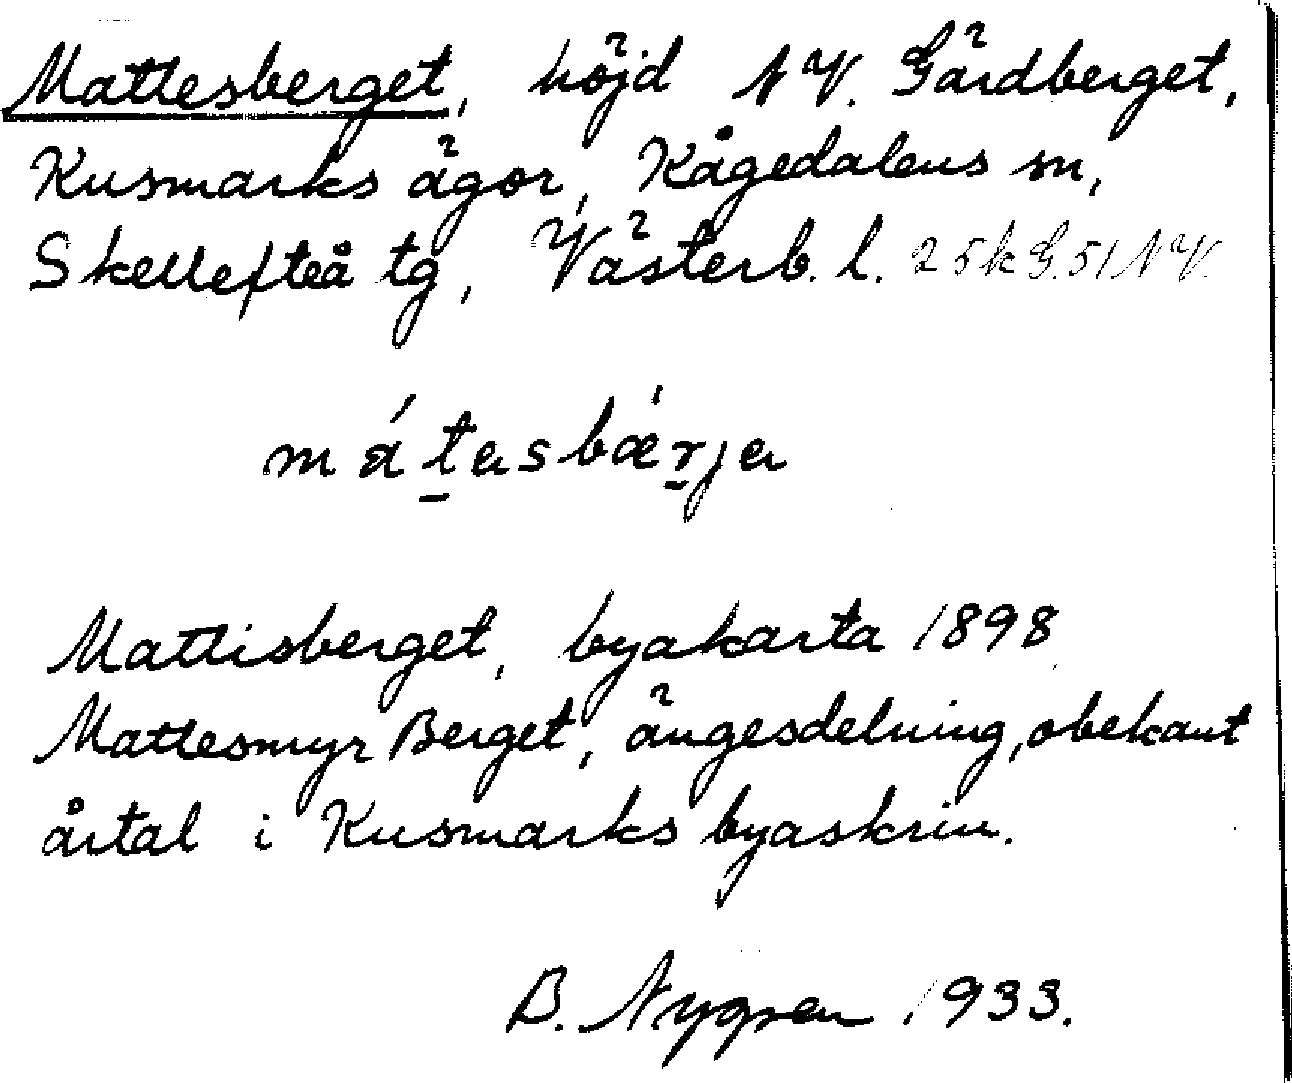 Mattesberget, höjd NV. Gärdberget,
Kusmarks ägor, Kågedalens sn,
Skellefteå tg, Västerb. l. 25k G. 51 NV.
mátasbærja
Mattisberget, byakarta 1898
Mattesmyr Berget, ängesdelning, obekant
årtal i Kusmarks byaskrin.
B. Nygren 1933.